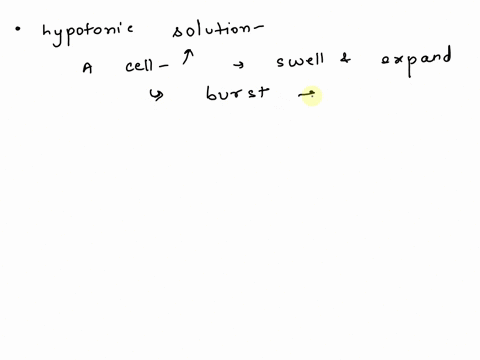 • hypotonic solution-
A cell- ↗ → swell & expand
↳ burst →